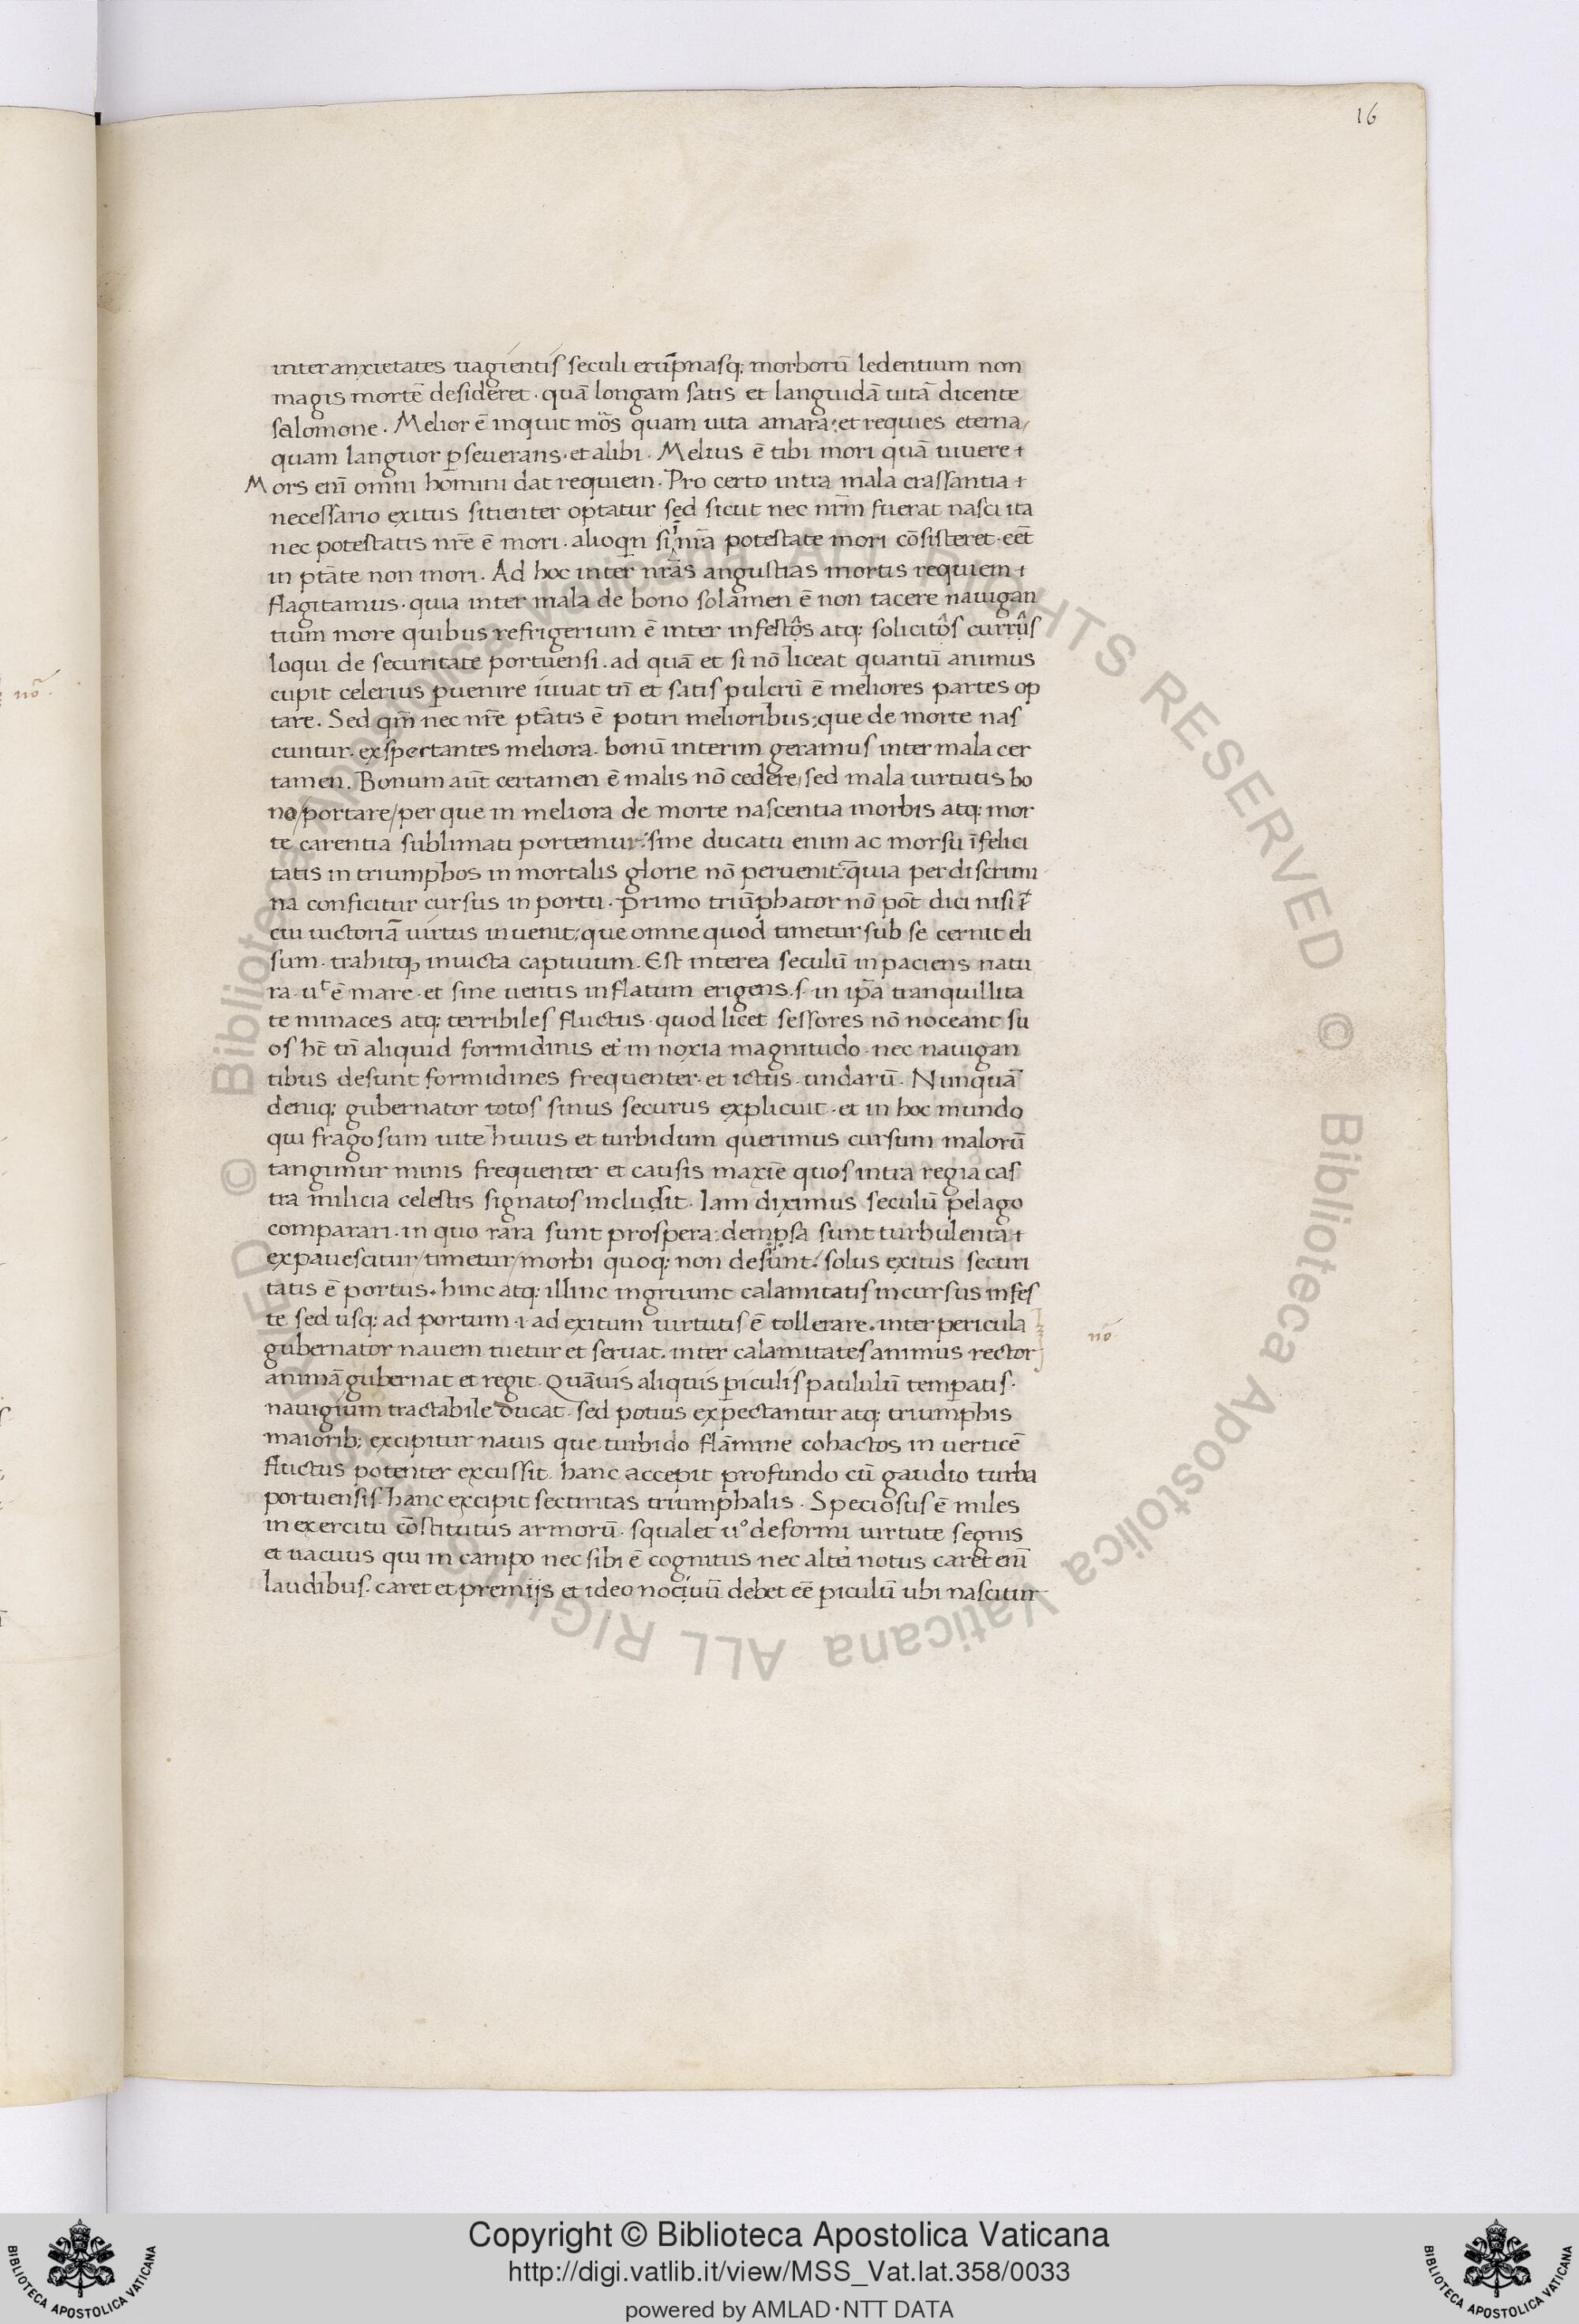 16
inter anxietates uagientis seculi erũpnasq; morborũ ledentium non
magis mortẽ desideret · quã longam satis et languidã uitã dicente
salomone . Melior ẽ inquit mõs quam uita amara : et requies eterna /
quam languor ꝑseuerans · et alibi . Melius ẽ tibi mori quã uiuere +
Mors enĩ omni homini dat requiem . Pro certo intra mala crassantia +
necessario exitus sitienter optatur sed sicut nec nr̃m fuerat nasci ita
nec potestatis nr̃e ẽ mori . alioqn si ĩ nr̃a potestate mori cõsisteret · eẽt
in ptãte non mori . Ad hoc inter nr̃as angustias mortis requiem +
flagitamus · quia inter mala de bono solamen ẽ non tacere nauigan
tium more quibus refrigerium ẽ inter infestôs atq; solicitôs currûs
loqui de securitate portuensi . ad quã et si nõ liceat quantũ animus
cupit celerius ꝑuenire iuuat tñ et satis pulcrũ ẽ meliores partes op
tare . Sed qm̃ nec nr̃e ptãtis ẽ potiri melioribus ; que de morte nas
cuntur . exspectantes meliora . bonũ interim geramus inter mala cer
tamen . Bonum aũt certamen ẽ malis nõ cedere / sed mala uirtutis bo
no / portare / per que in meliora de morte nascentia morbis atq; mor
te carentia sublimati portemur : sine ducatu enim ac morsu ĩfelici
tatis in triumphos in mortalis glorie nõ peruenit : quia per discrimi
na conficitur cursus in portu . Primo triũphator nõ põt dici nisi ĩ
cui uictoriã uirtus inuenit ; que omne quod timetur sub se cernit eli
sum . trahitq; inuicta captiuum . Est interea seculũ inpaciens natu
ra · ut ẽ mare · et sine uentis inflatum erigens . s . in ip̃a tranquillita
te minaces atq; terribiles fluctus · quod licet sessores nõ noceant su
os hẽt tñ aliquid formidinis et in noxia magnitudo · nec nauigan
tibus desunt formidines frequenter · et ictus undarũ . Nunquã
deniq; gubernator totos sinus securus explicuit · et in hoc mundo
qui fragosum uite huius et turbidum querimus cursum malorũ
tangimur minis frequenter et causis maxĩe quos intra regia cas
tra milicia celestis signatos includit . Iam diximus seculũ pelago
comparari . in quo rara sunt prospera : dempsa sunt turbulenta +
expauescitur / timetur / morbi quoq; non desunt : solus exitus securi
tatis ẽ portus . hinc atq; illinc ingruunt calamitatis incursus infes
te sed usq; ad portum · i · ad exitum uirtutis ẽ tollerare . inter pericula
nõ
gubernator nauem tuetur et seruat . inter calamitates animus rector
animã gubernat et regit . Quãuis aliqtus ꝑiculis paululũ temperatis ·
nauigium tractabile ducat · sed potius expectantur atq; triumphis
maiorib; excipitur nauis que turbido flãmine cohactos in uerticẽ
fluctus potenter excussit . hanc accepit profundo cũ gaudio turba
portuensis . hanc excipit securitas triumphalis . Speciosus ẽ miles
in exercitu cõstitutus armorũ . squalet uº deformi uirtute segnis
et uacuus qui in campo nec sibi ẽ cognitus nec alteri notus caret enĩ
laudibus . caret et premijs et ideo nociuũ debet eẽ ꝑiculũ ubi nascitur
nõ
© Biblioteca Apostolica Vaticana ALL RIGHTS RESERVED © Biblioteca Apostolica Vaticana ALL RIGHTS RESERVED
Copyright © Biblioteca Apostolica Vaticana
http://digi.vatlib.it/view/MSS_Vat.lat.358/0033
powered by AMLAD·NTT DATA
BIBLIOTECA APOSTOLICA VATICANA
BIBLIOTECA APOSTOLICA VATICANA